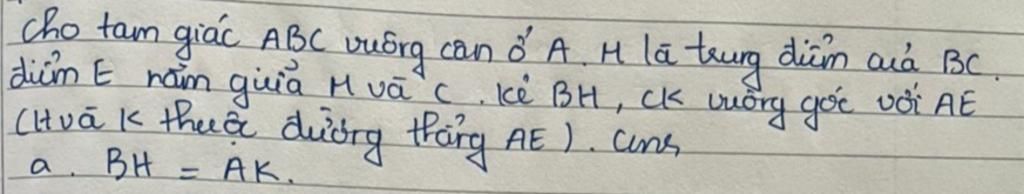 Cho tam giác ABC vuông cân ở A. H là trung điểm của BC.
điểm E nằm giữa H và C. kẻ BH, CK vuông góc với AE
(H và K thuộc đường thẳng AE). Cm
a. BH = AK.